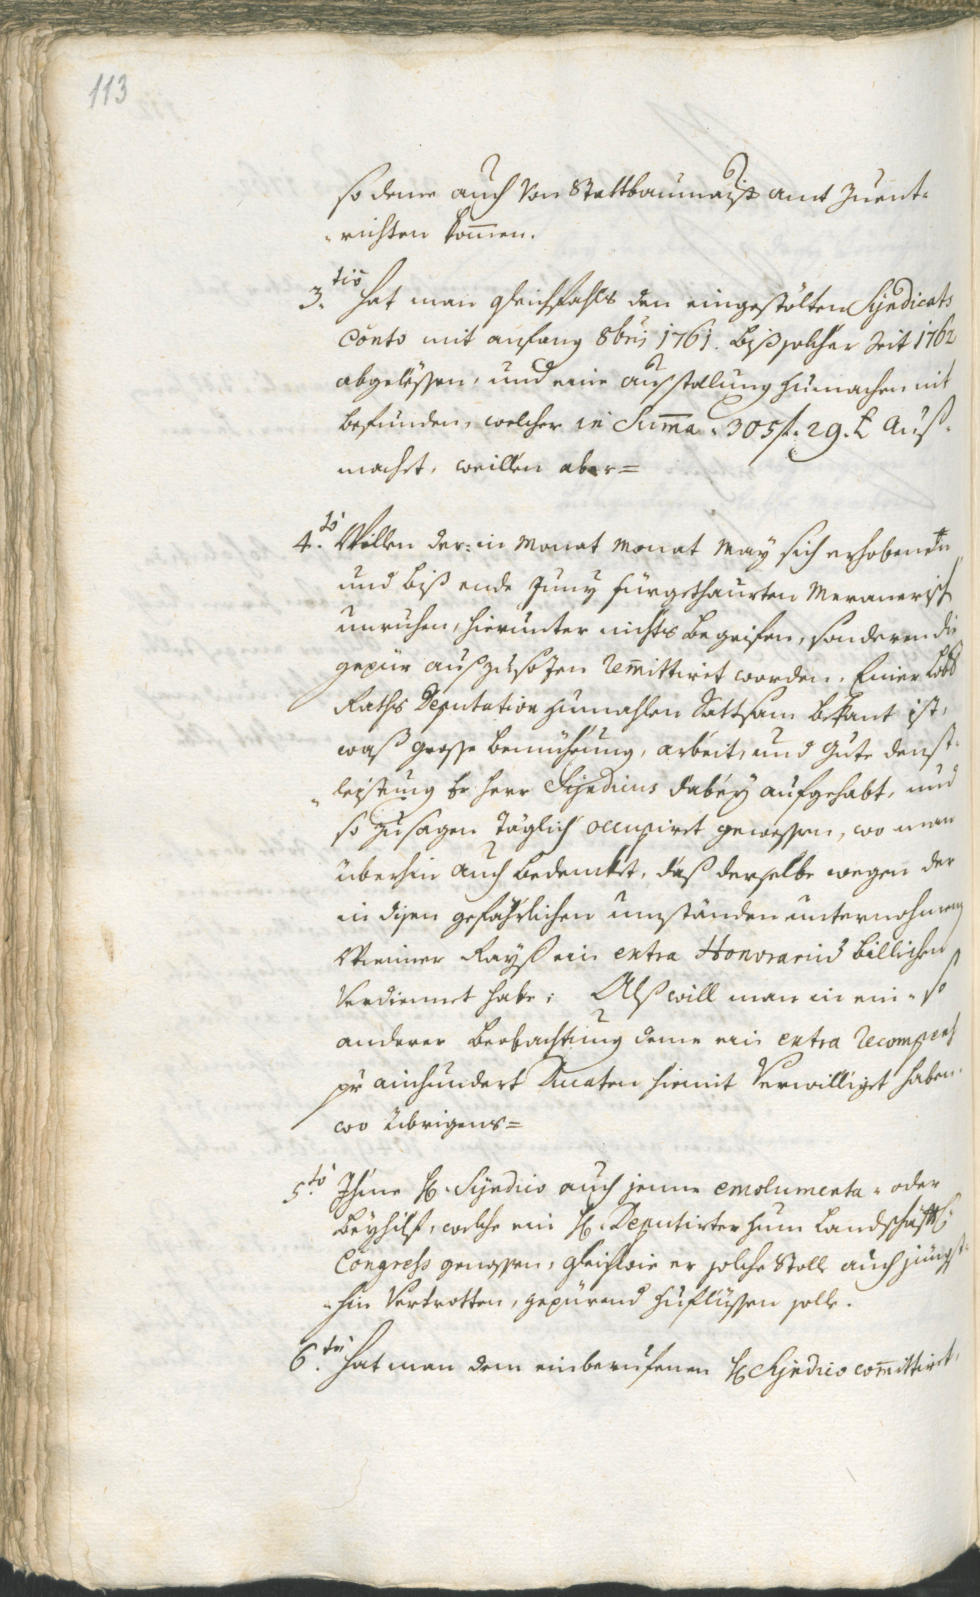 113
so deme auch von Stattbaumaist amt zuent-
-richten kommen.
3.tio Hat man gleichfahls den eingestölten Syndicats
Conto mit anfang 8bris 1761. biß solcher Zeit 1762
abgelößen, und eine ausstellung zumachen nit
befunden, welcher in Summa 305 f. 29. x Auß-
machet, weillen aber=
4.to Willen der: in Monat Monat May sich erhobenen
und biß ende Juny fürgethaurten Meranerisch
unruhen, hierunter nichts begrifen, sonderen die
gepür auszusezen remittiret worden. Einer Lobl
Raths Deputation zumahlen Sattsam bekant ist,
waß grosse bemüehung, arbeit, und gute denst-
-leistung Er Herr Syndicus dabey aufgehabt, und
so zusagen täglich occupiret gewessen, wo man
überhin auch bedenckt, daß derselbe wegen der
in disen gefährlichen umständen unternohmen
Wienner Rayß ein extra Honorarium billichen
verdiennet habe: Alß will man in ein- so
anderer beobachtung deme ein extra recompens
pr ainhundert Ducaten hiemit verwilliget haben.
wo übrigens=
5.to Ihme H. Syndico auch jenne emolumenta - oder
beyhilf, welche ein H. Deputirter zum Landschäftl:
Congress genossen, gleichwie er solche Stoll auch jüngst-
-hin vertretten, gepürend zuflüssen solle.
6.to Hat man dem einberufenen H Syndico committiret,